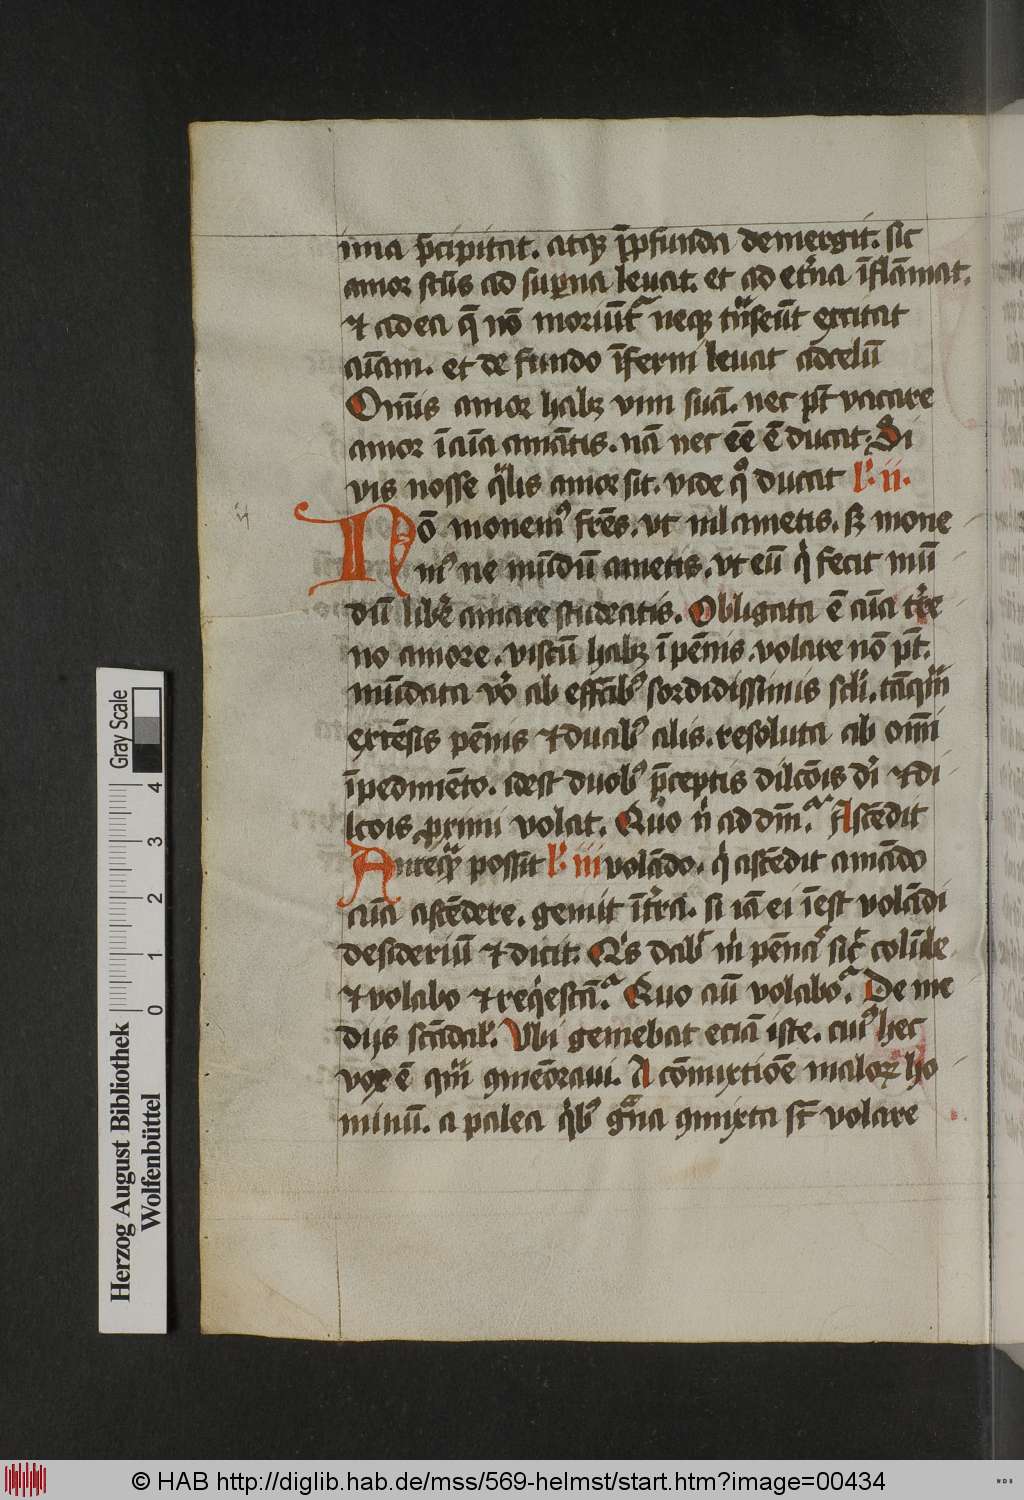 ima p̄cipitat. atqꝫ ī ꝓfunda demergit. sic
amor sc̄us ad suꝑna leuat. et ad et̾na īflāmat.
⁊ ad ea q̄ nō moriūt᷑ neqꝫ tᷓnseūt excitat
aīam. et de fundo īferni leuat ad celū
Om̄is amor habꝫ vim suā. nec pt̄ vacare
amor ī aīa amātis. nā nec eē ē ducat. Si
vis nosse qᷓlis amor sit. vide qͦ ducat l̾. ii.
Nō monemꝰ fr̄es. vt nil ametis. sꝫ mone
mꝰ ne mūdū ametis. vt eū qͥ fecit mū
dū libe̾ amare studeatis. Obligata ē aīa tr̾e
no amore. viscū habꝫ ī pēnis. volare nō pt̄.
mūdata vͦ ab effc̄ibꝰ sordidissimis sc̄li. tāqᷓm
extēsis pēnis ⁊ duabꝰ alis. resoluta ab om̄i
īpedimēto. idest duobꝰ p̄ceptis dilc̄ōis dī ⁊ di
lc̄ois ꝓximi volat. Quo n̄ ad dm̄. Ascēdit
Anteqᷓ possit l̾. iii volādo. qͥ ascēdit amādo
aīa ascēdere. gemit īt̾ra. si iā ei īest volādi
desideriū ⁊ dicit. Qͥs dabꝰ mͥ pēnas sic̄ colūbe
⁊ volabo ⁊ reqͥescā. Quo aū volabo. De me
dijs scādal̾. Vbi gemebat eciā iste. cuiꝰ hec
vox ē qᷓm ꝯmēoraui. A cōmixtiōe maloꝝ ho
minū. a palea qͥbꝰ gᷓna ꝯmixta st̄ volare
Herzog August Bibliothek
Wolfenbüttel
Gray Scale
0 1 2 3 4
© HAB http://diglib.hab.de/mss/569-helmst/start.htm?image=00434